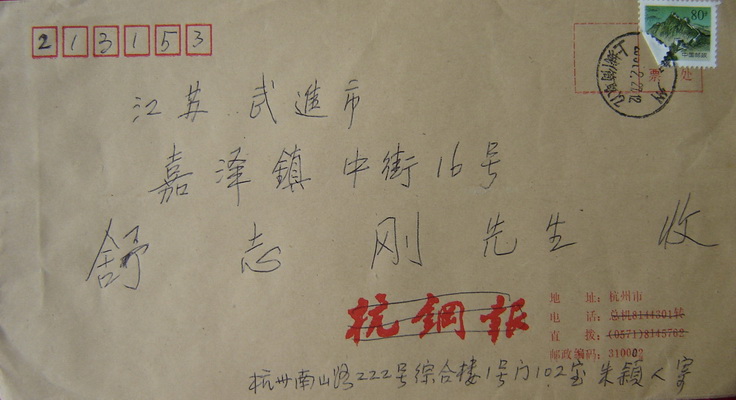 213153
80分
中国邮政
票 处
江苏 武進市
嘉泽鎮 中街16号
舒志刚 先生 收
杭鋼報
地 址：杭州市
电 话：总机8144301转
直 拨：(0571)8145762
邮政编码：310002
杭州南山路222号综合楼1号门102室 朱颖人寄